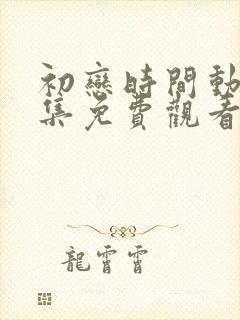 初戀時間動
集免費觀看
龍霄霄